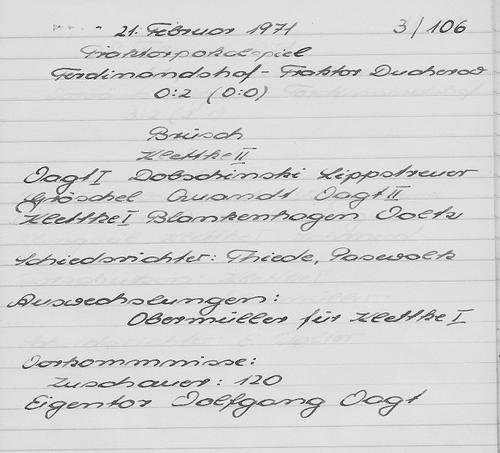 21. Februar 1971 3/106
Traktorpokalspiel
Ferdinandshof - Traktor Ducherow
0:2 (0:0)
Brüsch
Klettke II
Vagt I Dobschinski Lippstreuer
Gröschel Quandt Vagt II
Klettke I Blankenhagen Voelz
Schiedsrichter: Thiede, Pasewalk
Auswechslungen:
Obermüller für Klettke I
Vorkommnisse:
Zuschauer: 120
Eigentor Wolfgang Vagt